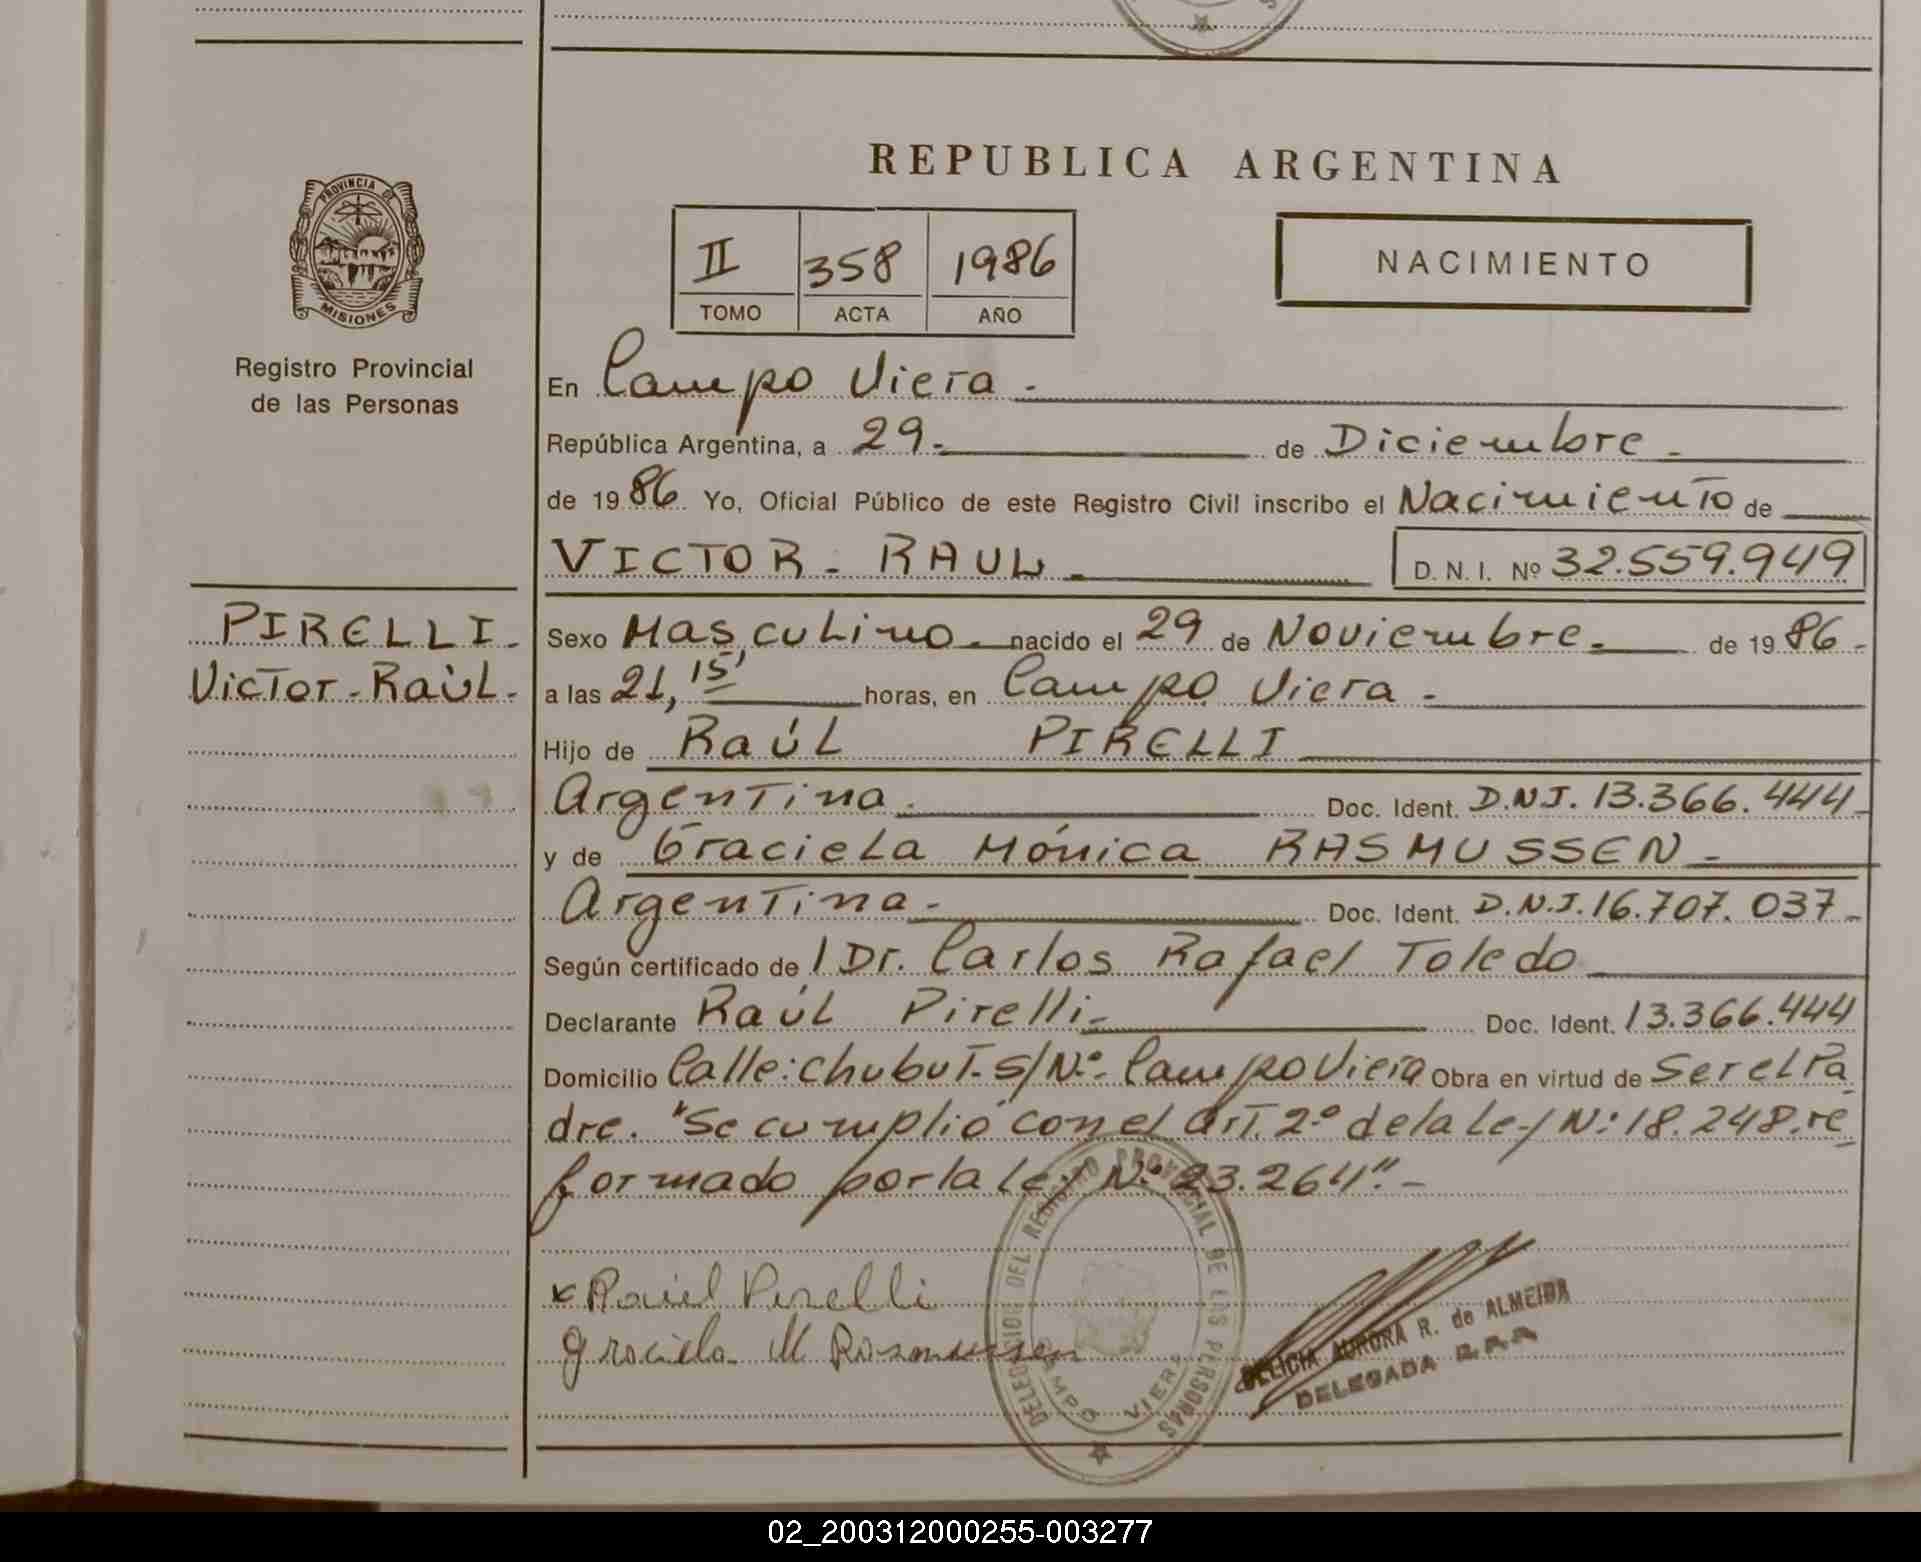 REPUBLICA ARGENTINA
PROVINCIA DE
MISIONES
Registro Provincial
de las Personas
II 358 1986
TOMO ACTA AÑO
NACIMIENTO
En Campo Viera.-
República Argentina, a 29.- de Diciembre.-
de 1986. Yo, Oficial Público de este Registro Civil inscribo el Nacimiento de
VICTOR - RAUL.- D. N. I. Nº 32.559.949
PIRELLI.-
Victor-Raúl.-
Sexo Masculino.- nacido el 29 de Noviembre.- de 1986.-
a las 21,15' horas, en Campo Viera.-
Hijo de Raúl PIRELLI
Argentina.- Doc. Ident. D.N.I. 13.366.444.-
y de Graciela Mónica RASMUSSEN.-
Argentina.- Doc. Ident. D.N.I. 16.707.037.-
Según certificado de / Dr. Carlos Rafael Toledo
Declarante Raúl Pirelli.- Doc. Ident. 13.366.444
Domicilio Calle: Chubut-S/Nº- Campo Viera Obra en virtud de Ser el Pa
dre. "Se cumplió con el Art. 2º de la Ley Nº 18.248. re
formado por la ley Nº 23.264".-
x Raúl Pirelli
Graciela M Rasmussen
DELEGACION DEL REGISTRO PROVINCIAL DE LAS PERSONAS
CAMPO VIERA
DELICIA AURORA R. de ALMEIDA
DELEGADA
02_200312000255-003277